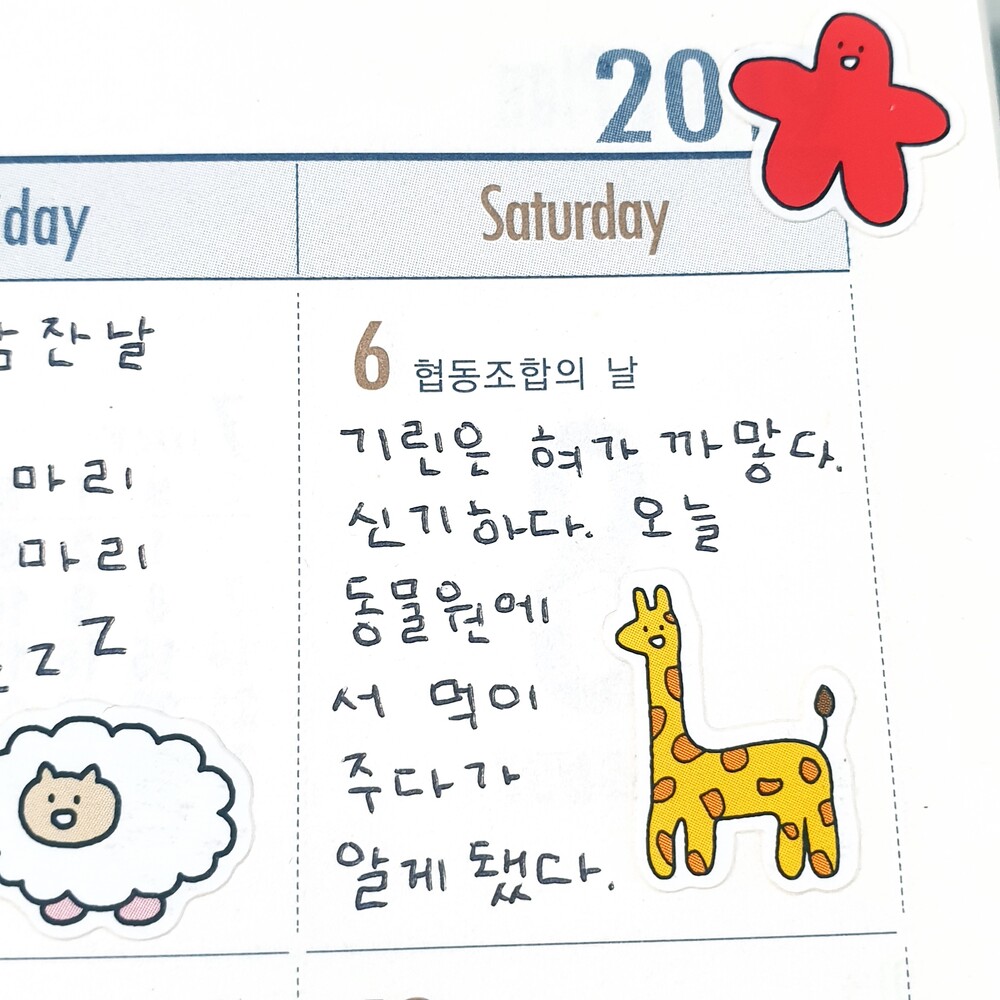 20
day
Saturday
잔 날
6 협동조합의 날
기린은 혀가 까맣다.
마리
신기하다. 오늘
마리
동물원에
z Z
서 먹이
주다가
알게 됐다.